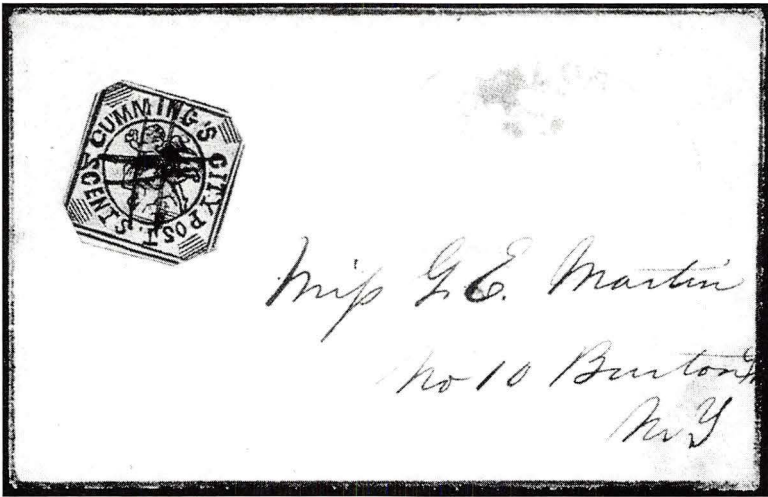 CUMMING'S CITY POST. 2 CENTS.
Miss G. E. Martin
No 10 Burton
N Y